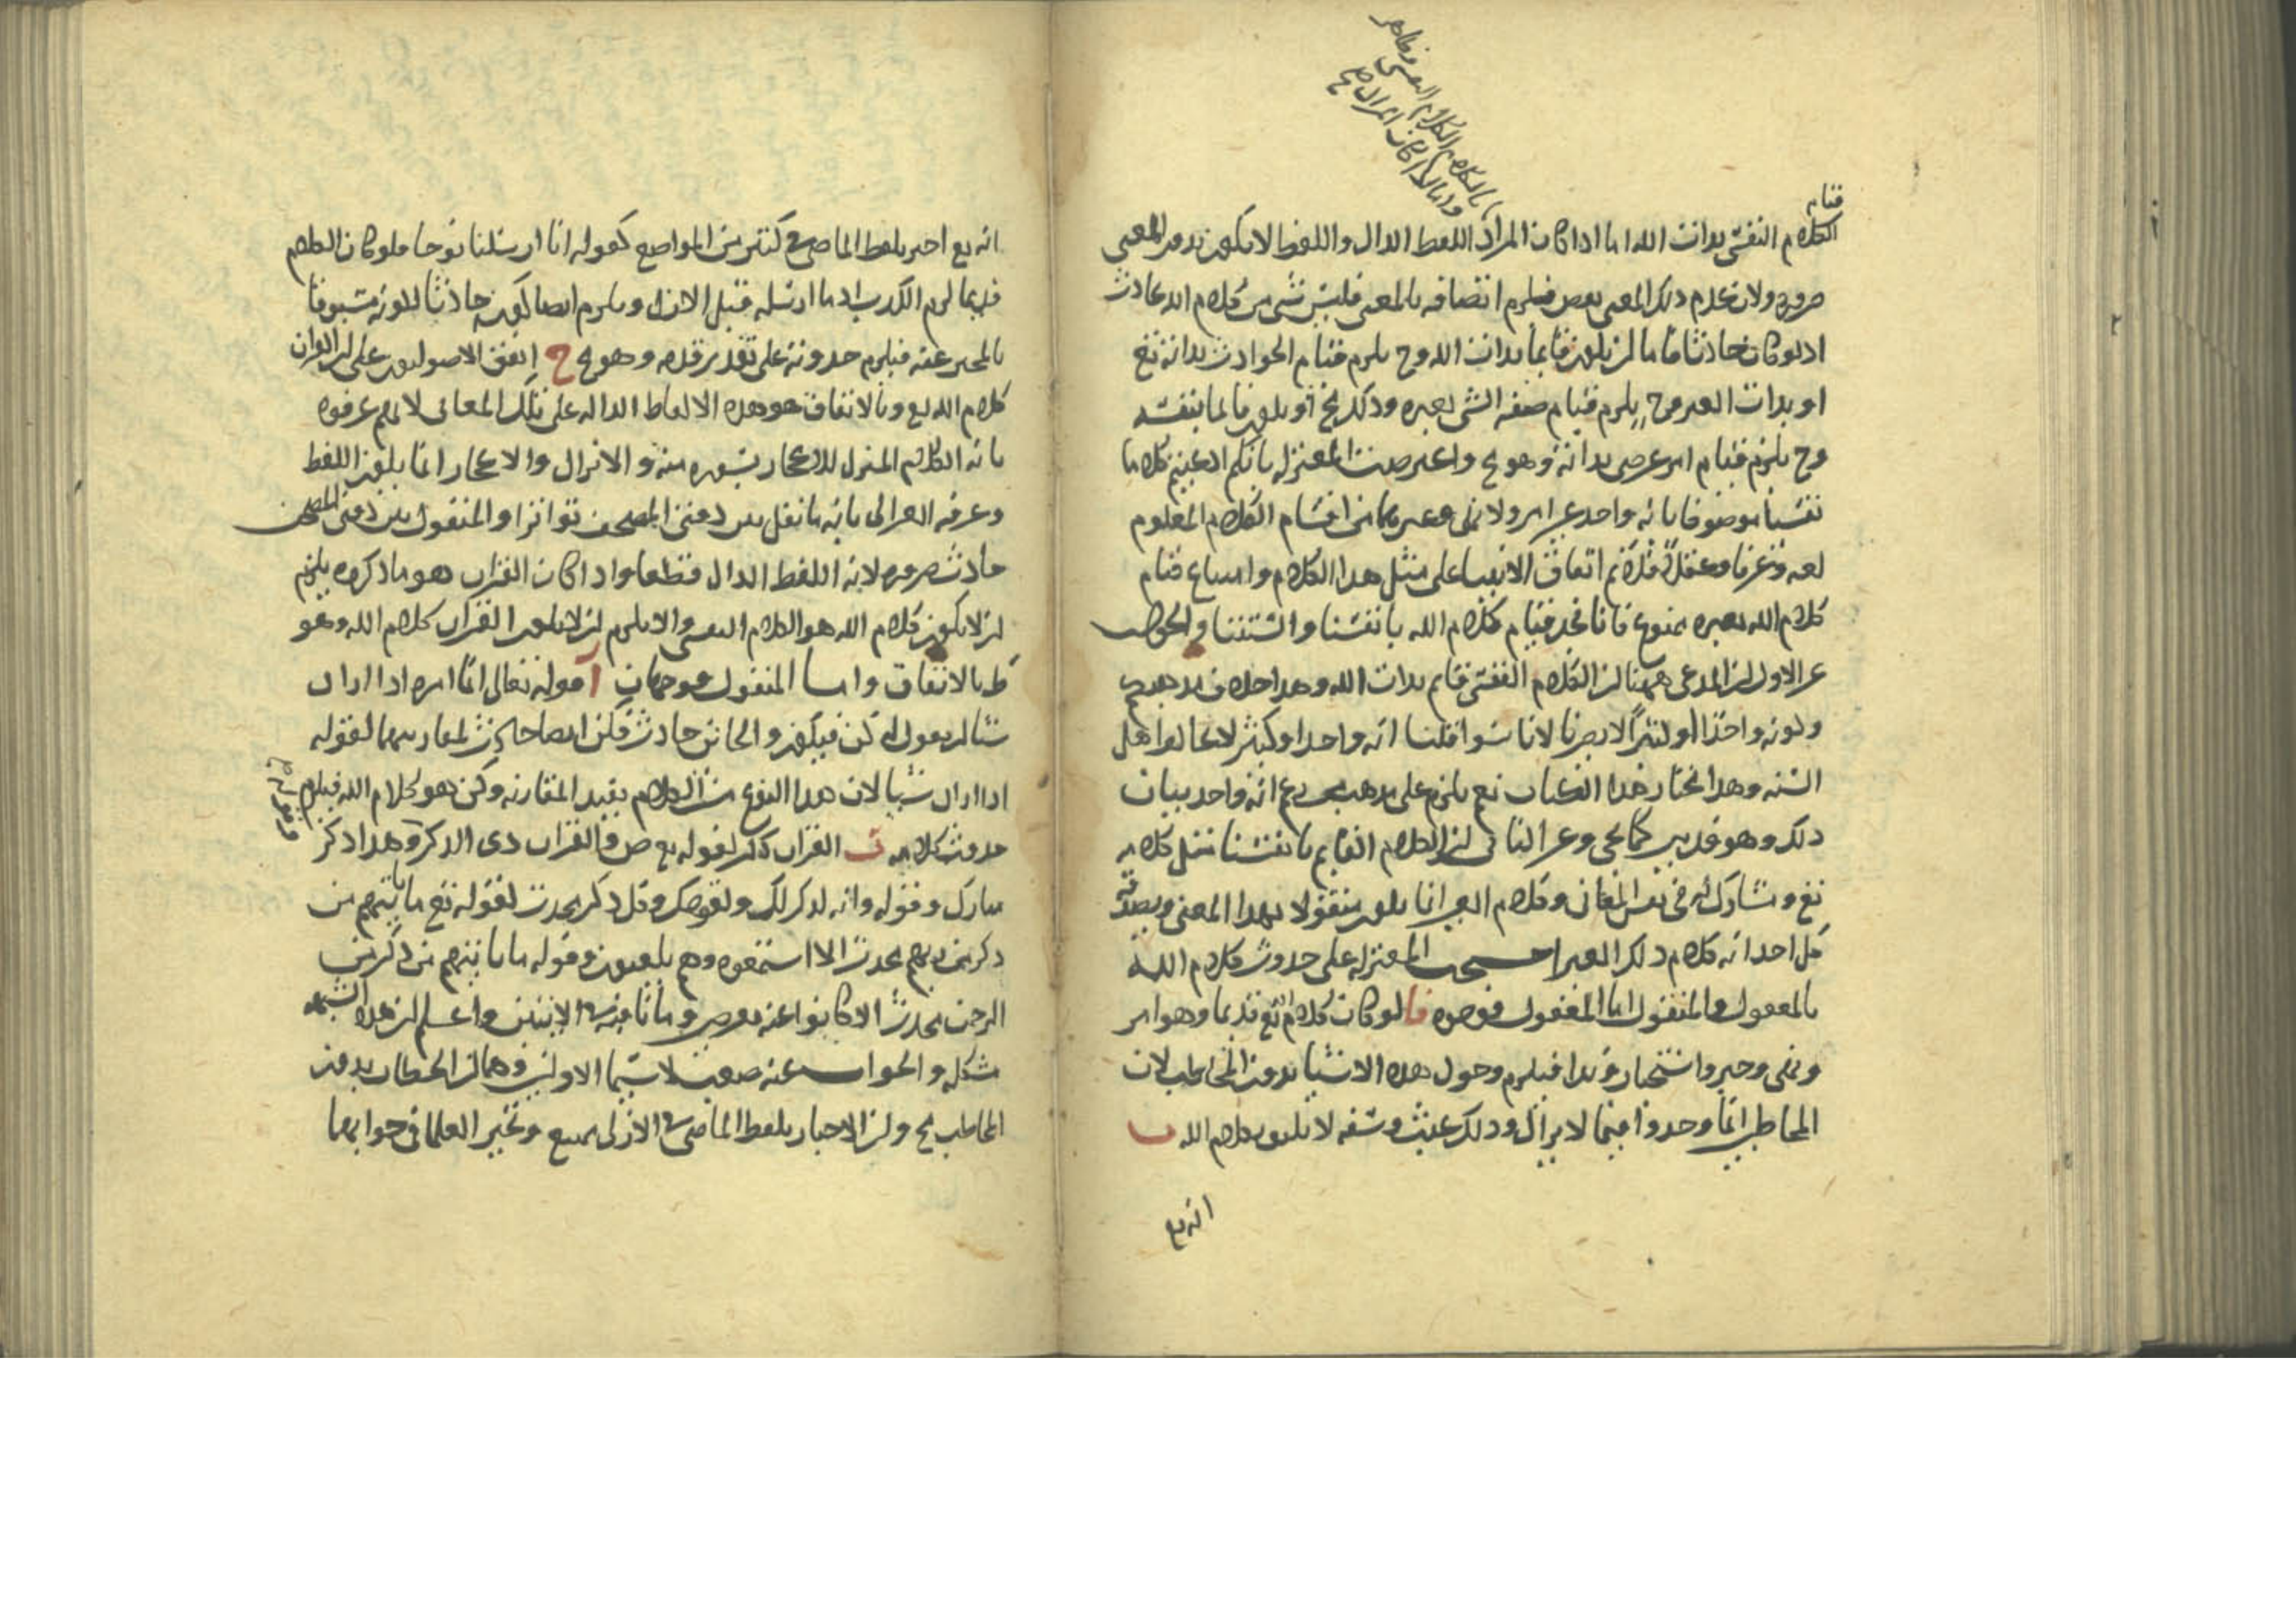 قيام
الكلام النفسي بذات الله اما اذا كان المراد اللفظ الدال واللفظ لا يكون بدون المعنى
ضرورة ولا نعدم ذلك المعنى بعض فيلزم اتصافه بالمعنى فليس شيء من كلام الله بحادث
اذ لو كان حادثا فاما ان يكون قايما بذات الله وح يلزم قيام الحوادث بذاته تع
او بذات الغير وح يلزم قيام صفة الشي بغيره وذلك مح او يكون قايما بنفسه
وح يلزم قيام امر عرضي بذاته وهو مح واعترضت المعتزلة بانكم ادعيتم كلاما
نفسيا موصوفا بانه واحد غير امر ولا نهي وغيرهما من اقسام الكلام المعلوم
لغة وعرفا وعقلا اتفاق الانبيا على مثل هذا الكلام وامتناع قيام
كلام الله بغيره ممنوع فانا نجد قيام كلام الله بانفسنا والسنتنا والجواب
عن الاول ان المدعى ههنا ان الكلام النفسي قايم بذات الله وهذا خلاف مذهبكم
وكونه واحدا او كثيرا لا يضرنا لانا سوا قلنا انه واحد او كثير لا يخالفوا اهل
السنه وهذا مختار هذا الكتاب نعم يلزم على مذهب من يدعي انه واحد بيان
ذلك وهو قد بين كما يجي وعن الثاني ان الكلام القايم بانفسنا مثل كلامه
تع ومشارك له في بعض المعاني وكلام الغير انما يكون منقولا بهذا المعنى ويصدقه
كل احد انه كلام ذلك الغير احتجت المعتزله على حدوث كلام الله
بالمعقول والمنقول اما المعقول فوجوه فا لو كان كلام الله تع قديما وهو امر
ونهي وخبر واستخبار وندا فيلزم وحول هذه الاشيا بدون المخاطب لان
المخاطب انما وجدوا فيما لا يزال وذلك عبث وسفه لا يليق بكلام الله ب
انه تع
انه تع اخبر بلفظ الماضي في كثير من المواضع كقوله انا ارسلنا نوحا فلو كان الكلام
قديما لزم الكذب اذ ما ارسله قبل الازل ويلزم ايضا كونه حادثا لكونه مسبوقا
بالمخبر عنه فيلزم حدوثه على تقدير قدمه وهو مح ج اتفق الاصوليون على ان القران
كلام الله تع وبالاتفاق هو هذه الالفاظ الداله على تلك المعاني لانهم عرفوه
بانه الكلام المنزل للاعجاز بسورة منه والانزال والاعجاز انما يكون اللفظ
وعرفه الغزالي بانه ما نقل بين دفتي المصحف تواترا والمنقول بين دفتي المصحف
حادث ضرورة لانه اللفظ الدال قطعا واذا كان القران هو ما ذكروه يلزم
ان لا يكون كلام الله هو الكلام النفسي والا يلزم ان لا يكون القران كلام الله وهو
بط بالاتفاق واما المنقول فوجهان آ قوله تعالى انما امره اذا اراد
شيا ان يقول له كن فيكون والكاين حادث فكن ايضا حادث لمقارنتهما لقوله
اذا اراد شيا لان هذا النوع من الكلام يفيد المقارنه وكن هو كلام الله فيلزم
حدوث كلامه ب القران ذكر لقوله تع ص والقران ذي الذكر وهذا ذكر
مبارك وقوله وانه لذكر لك ولقومك وكل ذكر محدث لقوله تع ما ياتيهم من
ذكر من ربهم محدث الا استمعوه وهم يلعبون وقوله ما ياتيهم من ذكر من
الرحمن محدث الا كانوا عنه معرضين واعلم ان هذه الشبهة
مشكله والجواب عنه صعب لا سيما الاوليين وهما ان الخطاب بدون
المخاطب مح وان الاخبار بلفظ الماضي في الازلي ممتنع وتحير العلما في جوابهما